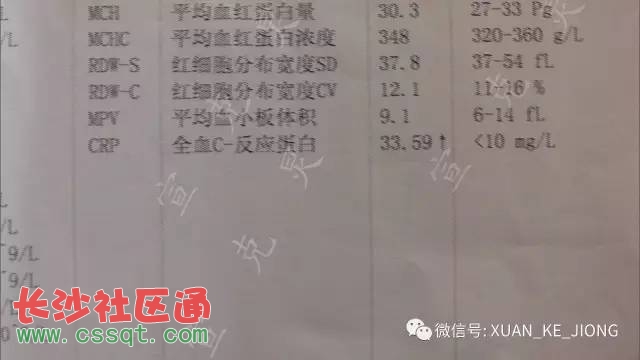 MCH 平均血红蛋白量 30.3 27-33 Pg
/L MCHC 平均血红蛋白浓度 348 320-360 g/L
RDW-S 红细胞分布宽度SD 37.8 37-54 fL
RDW-C 红细胞分布宽度CV 12.1 11-16 %
MPV 平均血小板体积 9.1 6-14 fL
CRP 全血C-反应蛋白 33.59↑ <10 mg/L
宣
克
炅
宣
/L
^9/L
^9/L
/L
长沙社区通
www.cssqt.com
微信号: XUAN_KE_JIONG